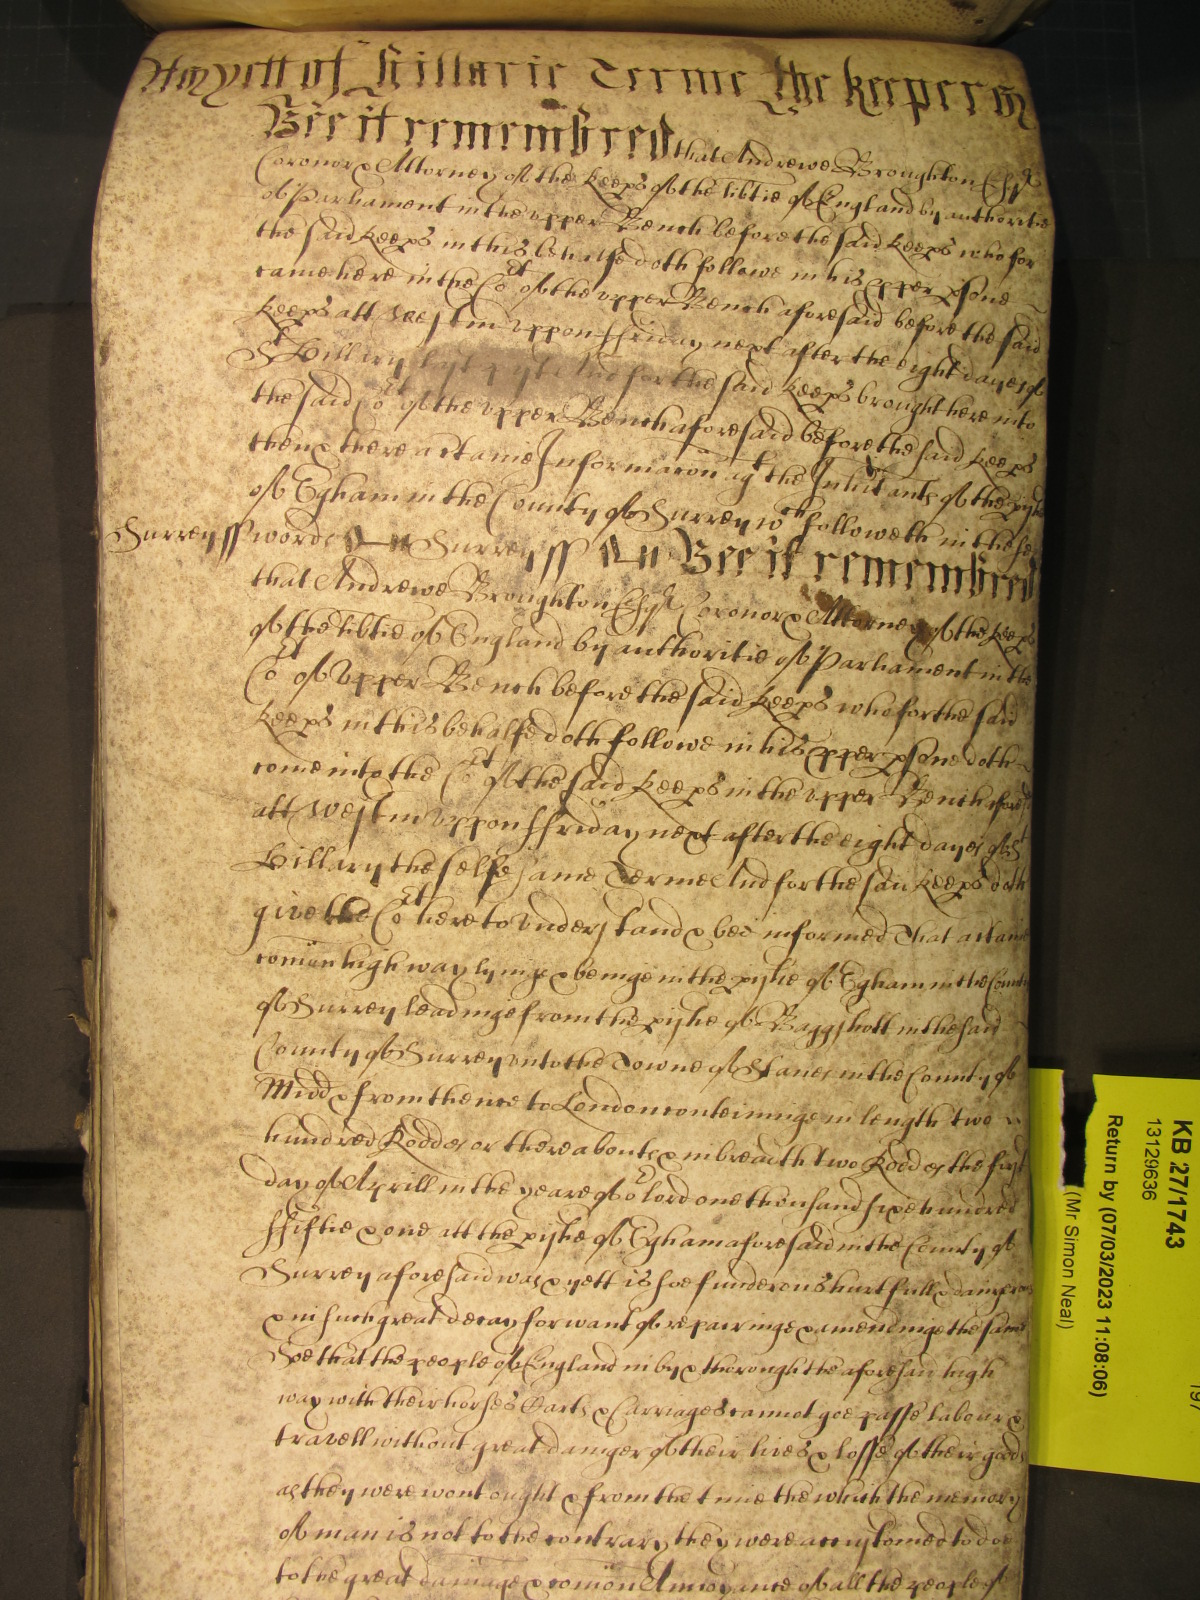 As yett of Hillarie Terme The Keepers
Bee it remembred that Andrewe Broughton Esqr
Coronor & Attorney of the Keeps of the libtie of England by authoritie
of Parliament in the upper Bench before the said Keeps who for
the said Keeps in this behalfe doth followe in his pper psone
came here in the Cot of the upper Bench aforesaid before the said
Keeps att Westm uppon ffriday next after the eight dayes of
St Hillary last past And for the said Keeps brought here into
the said Cot of the upper Bench aforesaid before the said Keeps
then & there a ctaine Informacon agt the Inhitants of the pish
of Egham in the County of Surrey wch followeth in these
Surrey ss words Surrey ss Bee it remembred
that Andrewe Broughton Esqr Coronor & Attorney of the Keeps
of the libtie of England by authoritie of Parliament in the
Cot of Upper Bench before the said Keeps who for the said
Keeps in this behalfe doth followe in his pper psone doth
come into the Cot of the said Keeps in the upper Bench aforesd
att Westm uppon ffriday next after the eight dayes of St
Hillary the selfe same Terme And for the said Keeps doth
give the Cot here to understand & bee informed That a ctaine
comon high way lyinge & beinge in the pishe of Egham in the County
of Surrey leadinge from the pishe of Baggshott in the said
County of Surrey unto the Towne of Stanes in the County of
Midd & from thence to London conteininge in length two
hundred Rodds or thereabouts & in breadth two Rodds the first
day of Aprill in the yeare of or lord one thousand six hundred
ffiftie & one att the pishe of Egham aforesaid in the County of
Surrey aforesaid was & yett is soe funderous hurtfull & dangerous
& in such great decay for want of repairinge & amendinge the same
Soe that the people of England in by & thorough the aforesaid high
way with their horses Carts & Carriages cannot goe passe labour &
travell without great danger of their lives & losse of their goods
as they were wont ought & from the time the which the memory
of man is not to the contrary they were accustomed to doe
to the great damage & comon Annoyance of all the people of
KB 27/1743
13129636
Return by (07/03/2023 11:08:06)
(Mr Simon Neal)